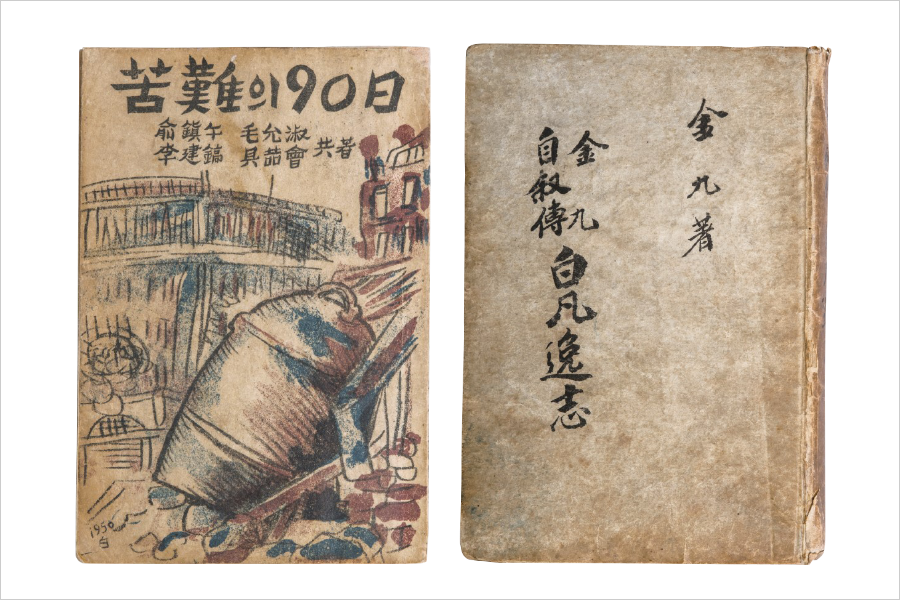 苦難의90日
俞鎭午 毛允淑
李建鎬 具喆會 共著
1950
金九著
金九
自叙傳
白凡逸志